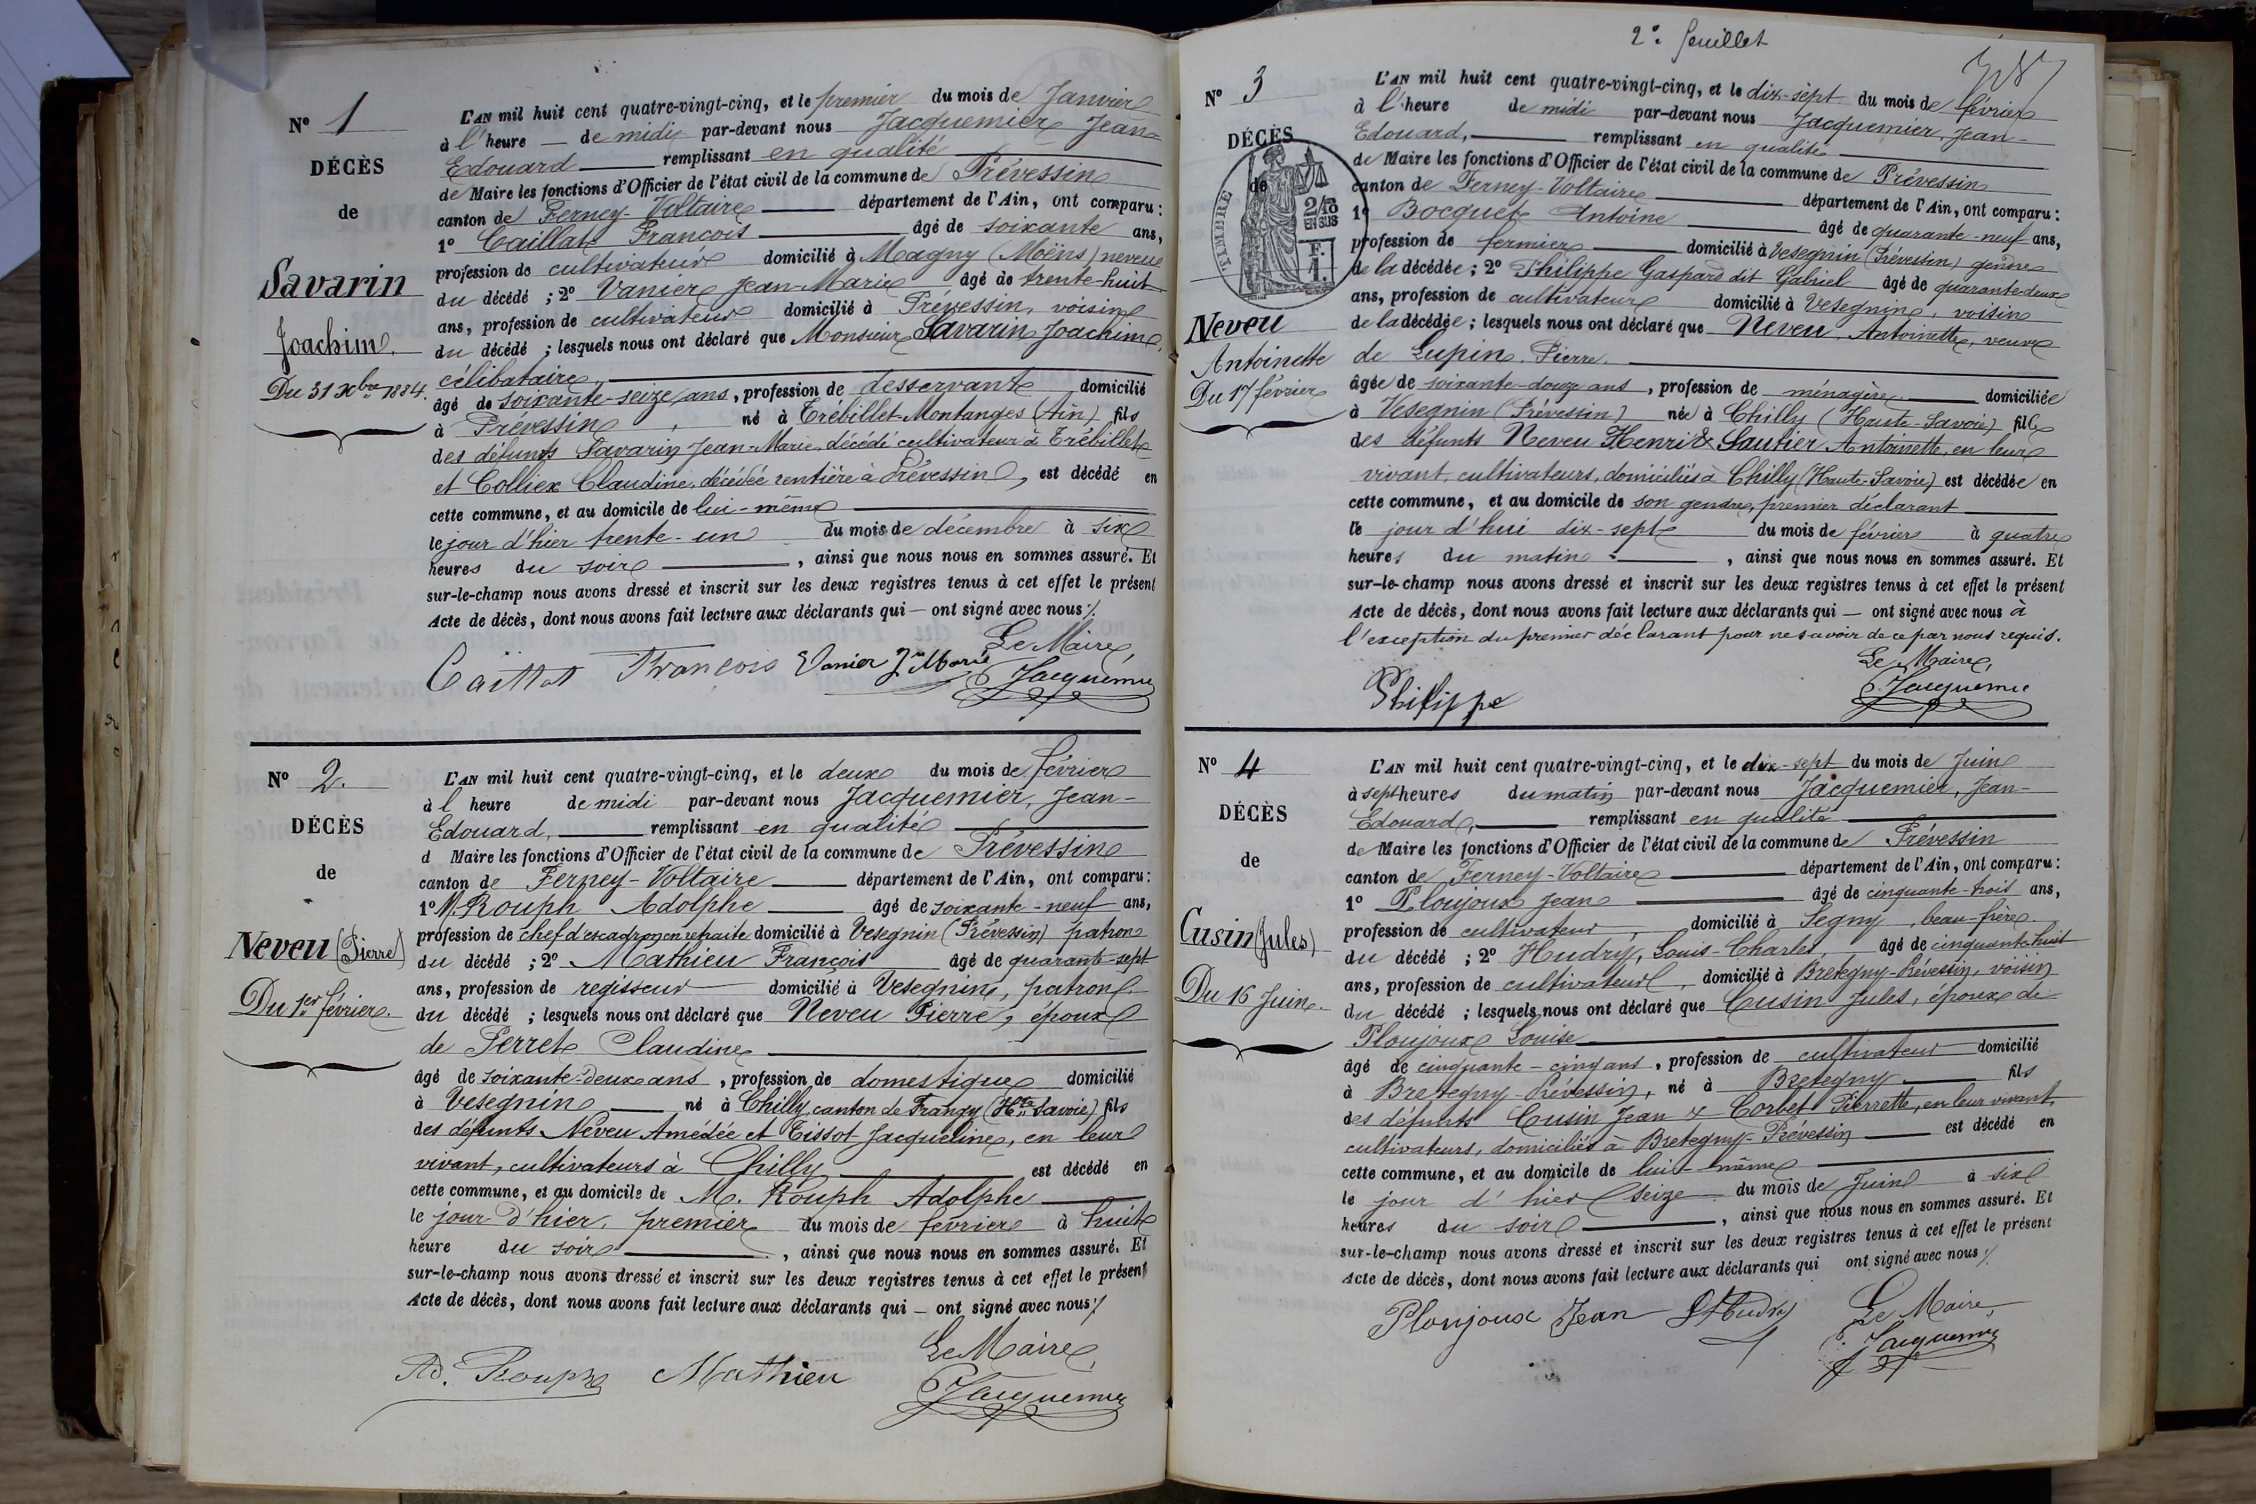 N° 1
DÉCÈS
de
Savarin
Joachim.
Du 31 Xbre 1884.
L'AN mil huit cent quatre-vingt-cinq, et le premier du mois de Janvier
à l'heure de midi par-devant nous Jacquemier Jean-
Edouard remplissant en qualité
de Maire les fonctions d'Officier de l'état civil de la commune de Prévessin
canton de Ferney-Voltaire département de l'Ain, ont comparu :
1° Caillat François âgé de soixante ans,
profession de cultivateur domicilié à Magny (Moëns) neveu
du décédé ; 2° Vanier Jean-Marie âgé de trente-huit
ans, profession de cultivateur domicilié à Prévessin, voisin
du décédé ; lesquels nous ont déclaré que Monsieur Savarin Joachim,
célibataire,
âgé de soixante-seize ans, profession de desservant domicilié
à Prévessin, né à Trébillet-Montanges (Ain) fils
des défunts Savarin Jean-Marie, décédé cultivateur à Trébillet
et Colliex Claudine, décédée rentière à Prévessin, est décédé en
cette commune, et au domicile de lui-même
le jour d'hier trente-un du mois de décembre à six
heures du soir, ainsi que nous nous en sommes assuré. Et
sur-le-champ nous avons dressé et inscrit sur les deux registres tenus à cet effet le présent
Acte de décès, dont nous avons fait lecture aux déclarants qui — ont signé avec nous ./.
Le Maire,
Caillat François Vanier Jn Marie E. Jacquemier
N° 2.
DÉCÈS
de
Neveu (Pierre)
Du 1er février.
L'AN mil huit cent quatre-vingt-cinq, et le deux du mois de février
à l heure de midi par-devant nous Jacquemier, Jean-
Edouard, remplissant en qualité
d Maire les fonctions d'Officier de l'état civil de la commune de Prévessin
canton de Ferney-Voltaire département de l'Ain, ont comparu :
1° M. Rouph Adolphe âgé de soixante-neuf ans,
profession de chef d'escadron en retraite domicilié à Vesegnin (Prévessin) patron
du décédé ; 2° Mathieu François âgé de quarante-sept
ans, profession de regisseur domicilié à Vesegnin, patron
du décédé ; lesquels nous ont déclaré que Neveu Pierre, époux
de Perret Claudine
âgé de soixante-deux ans, profession de domestique domicilié
à Vesegnin né à Chilly canton de Frangy (Hte Savoie) fils
des défunts Neveu Amédée et Tissot Jacqueline, en leur
vivant, cultivateurs à Chilly est décédé en
cette commune, et au domicile de M. Rouph Adolphe
le jour d'hier, premier du mois de février à huit
heure du soir, ainsi que nous nous en sommes assuré. Et
sur-le-champ nous avons dressé et inscrit sur les deux registres tenus à cet effet le présent
Acte de décès, dont nous avons fait lecture aux déclarants qui — ont signé avec nous ./.
Le Maire,
Ad. Rouph Mathieu E. Jacquemier
2e feuillet
N° 3
DÉCÈS
de
TIMBRE
2/10
EN SUS
F.
1.
Neveu
Antoinette
Du 17 février
L'AN mil huit cent quatre-vingt-cinq, et le dix-sept du mois de février
à l'heure de midi par-devant nous Jacquemier, Jean-
Edouard, remplissant en qualité
de Maire les fonctions d'Officier de l'état civil de la commune de Prévessin
canton de Ferney-Voltaire département de l'Ain, ont comparu :
1° Bocquet Antoine âgé de quarante-neuf ans,
profession de fermier domicilié à Vesegnin (Prévessin) gendre
de la décédée ; 2° Philippe Gaspard dit Gabriel âgé de quarante-deux
ans, profession de cultivateur domicilié à Vesegnin, voisin
de la décédée ; lesquels nous ont déclaré que Neveu, Antoinette, veuve
de Lupin Pierre.
âgée de soixante-douze ans, profession de ménagère domiciliée
à Vesegnin (Prévessin) née à Chilly (Haute-Savoie) fille
des défunts Neveu Henri & Sautier Antoinette, en leur
vivant, cultivateurs, domiciliés à Chilly (Haute-Savoie) est décédée en
cette commune, et au domicile de son gendre, premier déclarant
le jour d'hui dix-sept du mois de février à quatre
heures du matin, ainsi que nous nous en sommes assuré. Et
sur-le-champ nous avons dressé et inscrit sur les deux registres tenus à cet effet le présent
Acte de décès, dont nous avons fait lecture aux déclarants qui — ont signé avec nous à
l'exception du premier déclarant pour ne savoir de ce par nous requis.
Le Maire,
Philippe E. Jacquemier
N° 4
DÉCÈS
de
Cusin (Jules)
Du 16 Juin.
L'AN mil huit cent quatre-vingt-cinq, et le dix-sept du mois de Juin
à sept heures du matin par-devant nous Jacquemier, Jean-
Edouard, remplissant en qualité
de Maire les fonctions d'Officier de l'état civil de la commune de Prévessin
canton de Ferney-Voltaire département de l'Ain, ont comparu :
1° Ploujoux Jean âgé de cinquante-trois ans,
profession de cultivateur, domicilié à Segny, beau-frère
du décédé ; 2° Hudry, Louis-Charles, âgé de cinquante-huit
ans, profession de cultivateur, domicilié à Bretegny-Prévessin, voisin
du décédé ; lesquels nous ont déclaré que Cusin Jules, époux de
Ploujoux Louise
âgé de cinquante-cinq ans, profession de cultivateur domicilié
à Bretegny-Prévessin, né à Bretegny fils
des défunts Cusin Jean & Corbet Pierrette, en leur vivant,
cultivateurs, domiciliés à Bretegny-Prévessin est décédé en
cette commune, et au domicile de lui-même
le jour d'hier seize du mois de Juin à six
heures du soir, ainsi que nous nous en sommes assuré. Et
sur-le-champ nous avons dressé et inscrit sur les deux registres tenus à cet effet le présent
Acte de décès, dont nous avons fait lecture aux déclarants qui ont signé avec nous ./.
Le Maire,
Ploujoux Jean L Hudry E. Jacquemier